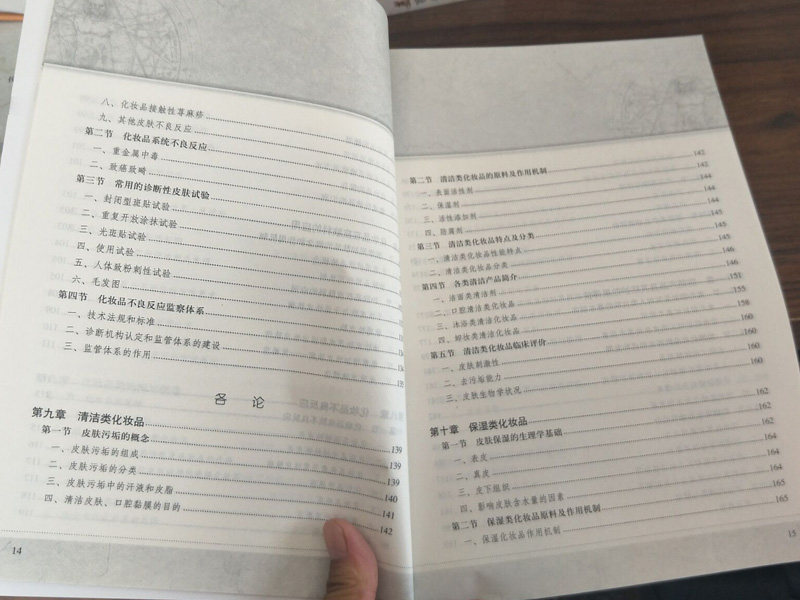 八、化妆品接触性荨麻疹
九、其他皮肤不良反应
第二节 化妆品系统不良反应
一、重金属中毒
二、致癌致畸
第三节 常用的诊断性皮肤试验
一、封闭型斑贴试验
二、重复开放涂抹试验
三、光斑贴试验
四、使用试验
五、人体致粉刺性试验
六、毛发图
第四节 化妆品不良反应监察体系
一、技术法规和标准
二、诊断机构认定和监管体系的建设
三、监管体系的作用
各 论
第九章 清洁类化妆品
第一节 皮肤污垢的概念 139
一、皮肤污垢的组成 139
二、皮肤污垢的分类 139
三、皮肤污垢中的汗液和皮脂 140
四、清洁皮肤、口腔黏膜的目的 141
142
14
第二节 清洁类化妆品的原料及作用机制 142
一、表面活性剂 143
二、保湿剂 144
三、活性添加剂 144
四、防腐剂 144
第三节 清洁类化妆品特点及分类 145
一、清洁类化妆品性能特点 145
二、清洁类化妆品分类 146
第四节 各类清洁产品简介 146
一、洁面类清洁剂 151
二、口腔清洁类化妆品 155
三、沐浴类清洁化妆品 158
四、卸妆类清洁化妆品 160
第五节 清洁类化妆品临床评价 160
一、皮肤刺激性 160
二、去污垢能力
三、皮肤生物学状况 162
第十章 保湿类化妆品 162
第一节 皮肤保湿的生理学基础 162
一、表皮 164
二、真皮 164
三、皮下组织 164
四、影响皮肤含水量的因素 165
第二节 保湿类化妆品原料及作用机制 165
一、保湿化妆品作用机制
15